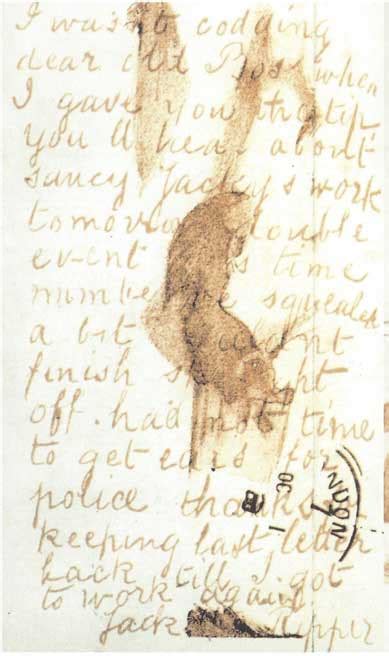 I wasnt codding
dear old Boss when
I gave you the tip.
youll hear about
saucy Jackys work
tomorrow double
event time
number squealed
a bit couldnt
finish
off. had not time
to get ears for
police thanks
keeping last letter
back till I got
to work again.
Jack Ripper
30